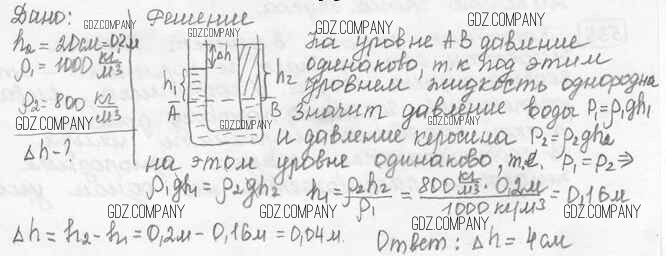 Дано:
h₂=20см=0,2м
ρ₁=1000 кг/м³
ρ₂=800 кг/м³
Δh-?
Решение
Δh
h₁
h₂
A
B
На уровне AB давление
одинаково, т.к под этим
уровнем, жидкость однородна
Значит давление воды P₁=ρ₁gh₁
и давление керосина P₂=ρ₂gh₂
на этом уровне одинаково, т.е. P₁=P₂⇒
ρ₁gh₁=ρ₂gh₂ h₁=ρ₂h₂/ρ₁=800 кг/м³·0,2м/1000 кг/м³=0,16м
Δh=h₂-h₁=0,2м-0,16м=0,04м.
Ответ: Δh=4см
GDZ.COMPANY
GDZ.COMPANY
GDZ.COMPANY
GDZ.COMPANY
GDZ.COMPANY
GDZ.COMPANY
GDZ.COMPANY
GDZ.COMPANY
GDZ.COMPANY
GDZ.COMPANY
GDZ.COMPANY